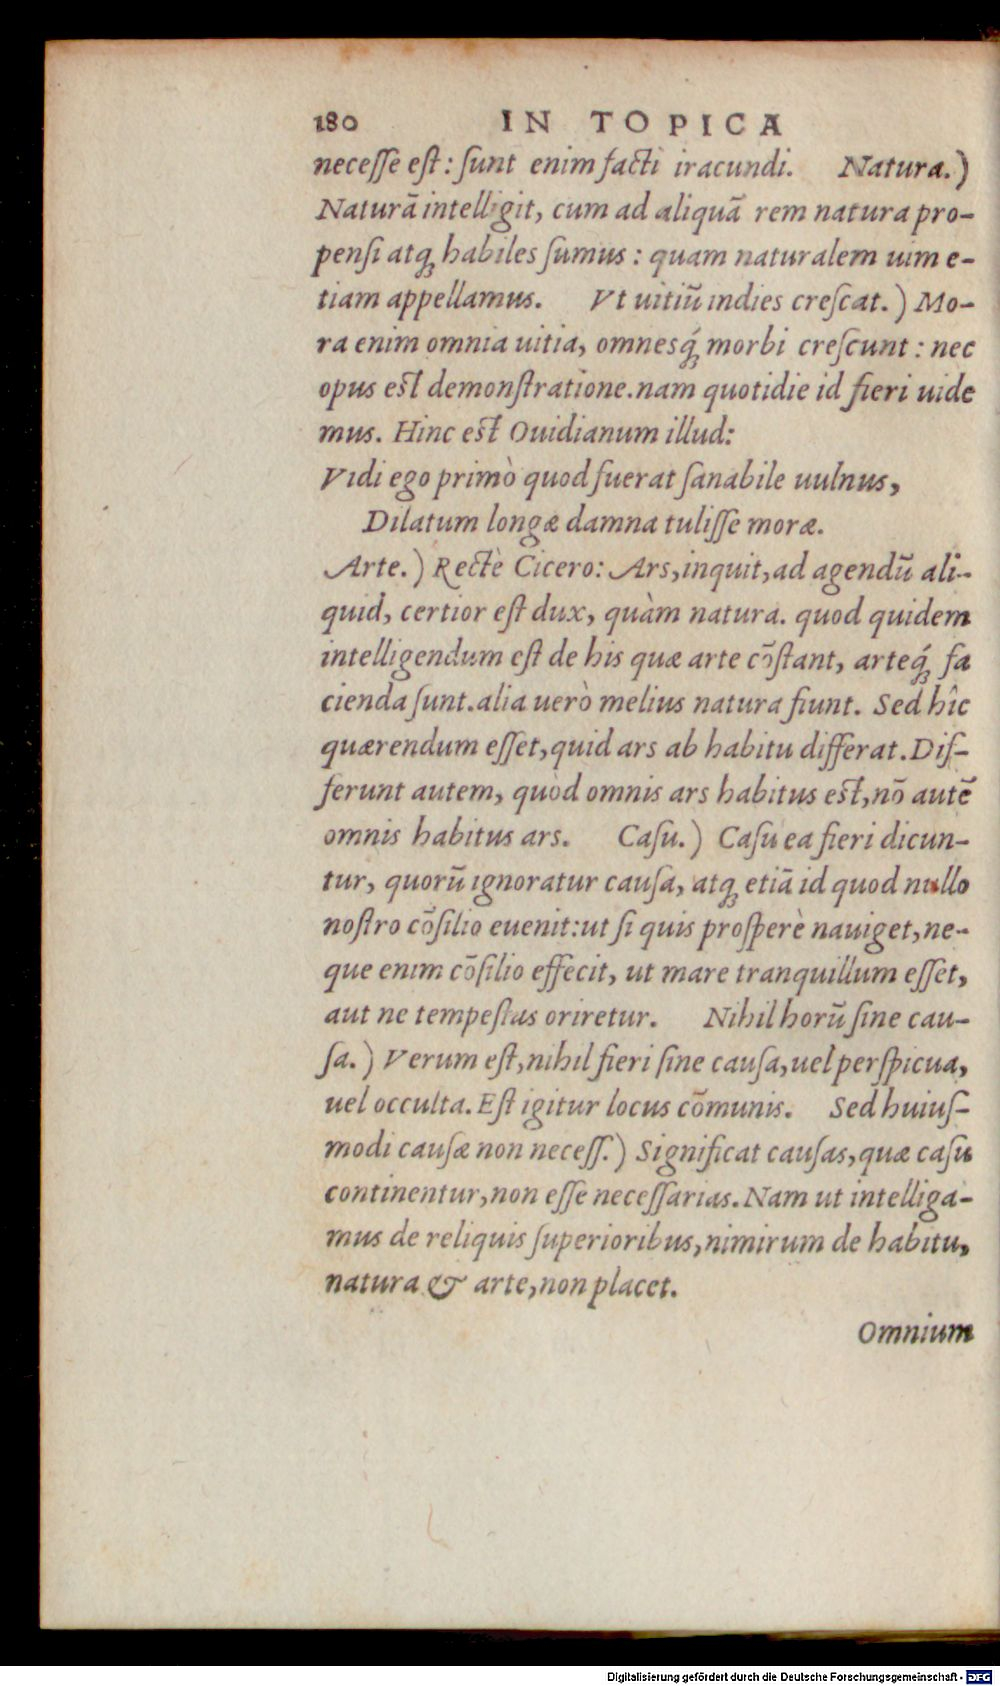 180 IN TOPICA
necesſe eſt: ſunt enim facti iracundi. Natura.)
Naturā intelligit, cum ad aliquā rem natura pro-
penſi atq; habiles ſumus: quam naturalem uim e-
tiam appellamus. Vt uitiū indies creſcat.) Mo-
ra enim omnia uitia, omnesq́; morbi creſcunt: nec
opus eſt demonſtratione. nam quotidie id fieri uide
mus. Hinc eſt Ouidianum illud:
Vidi ego primò quod fuerat ſanabile uulnus,
Dilatum longæ damna tuliſſe moræ.
Arte.) Rectè Cicero: Ars, inquit, ad agendū ali-
quid, certior eſt dux, quàm natura. quod quidem
intelligendum eſt de his quæ arte cōſtant, arteq́; fa
cienda ſunt. alia uerò melius natura fiunt. Sed hîc
quærendum eſſet, quid ars ab habitu differat. Diſ-
ferunt autem, quòd omnis ars habitus eſt, nō autē
omnis habitus ars. Caſu.) Caſu ea fieri dicun-
tur, quorū ignoratur cauſa, atq; etiā id quod nullo
noſtro cōſilio euenit: ut ſi quis proſperè nauiget, ne-
que enim cōſilio effecit, ut mare tranquillum eſſet,
aut ne tempeſtas oriretur. Nihil horū ſine cau-
ſa.) Verum eſt, nihil fieri ſine cauſa, uel perſpicua,
uel occulta. Eſt igitur locus cōmunis. Sed huiuſ-
modi cauſæ non neceſſ.) Significat cauſas, quæ caſu
continentur, non eſſe neceſſarias. Nam ut intelliga-
mus de reliquis ſuperioribus, nimirum de habitu,
natura & arte, non placet.
Omnium
Digitalisierung gefördert durch die Deutsche Forschungsgemeinschaft - DFG